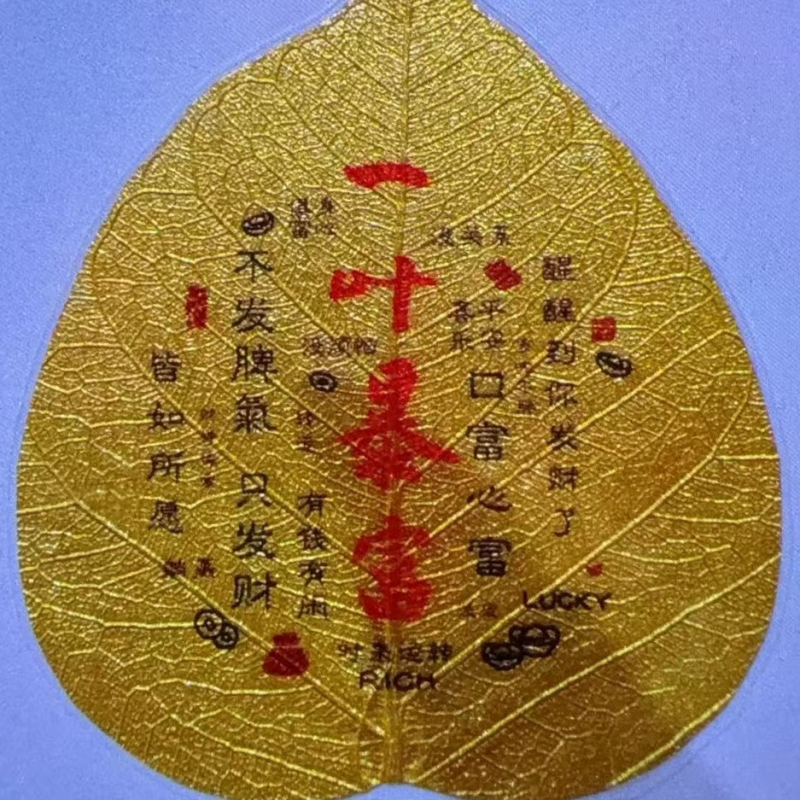 一叶暴富
醒醒到你发财了
平安
喜乐
口富心富
LUCKY
有钱有闲
不发脾氣 只发财
皆如所愿
时来运转
RICH